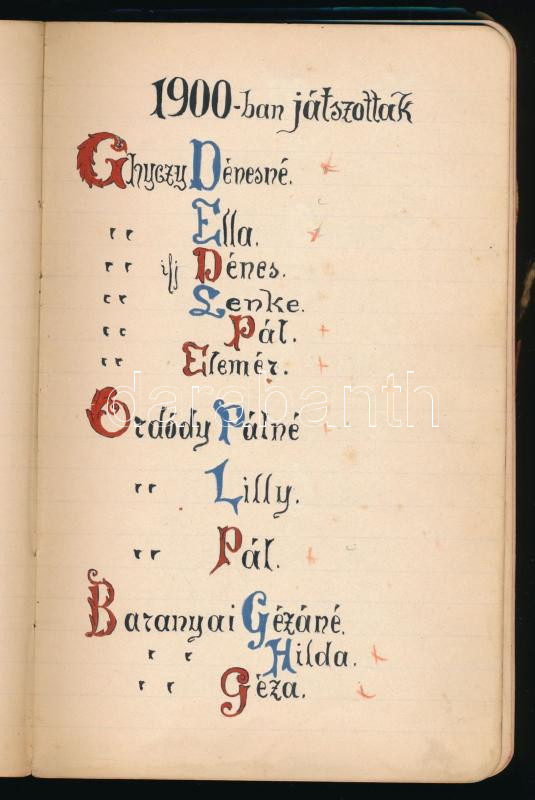 1900-ban játszottak
Ghyczy Dénesné.
" Ella.
" ifj Dénes.
" Lenke.
" Pál.
" Elemér.
darabanth
Ordódy Pálné
" Lilly.
" Pál.
Baranyai Gézáné.
" Hilda.
" Géza.